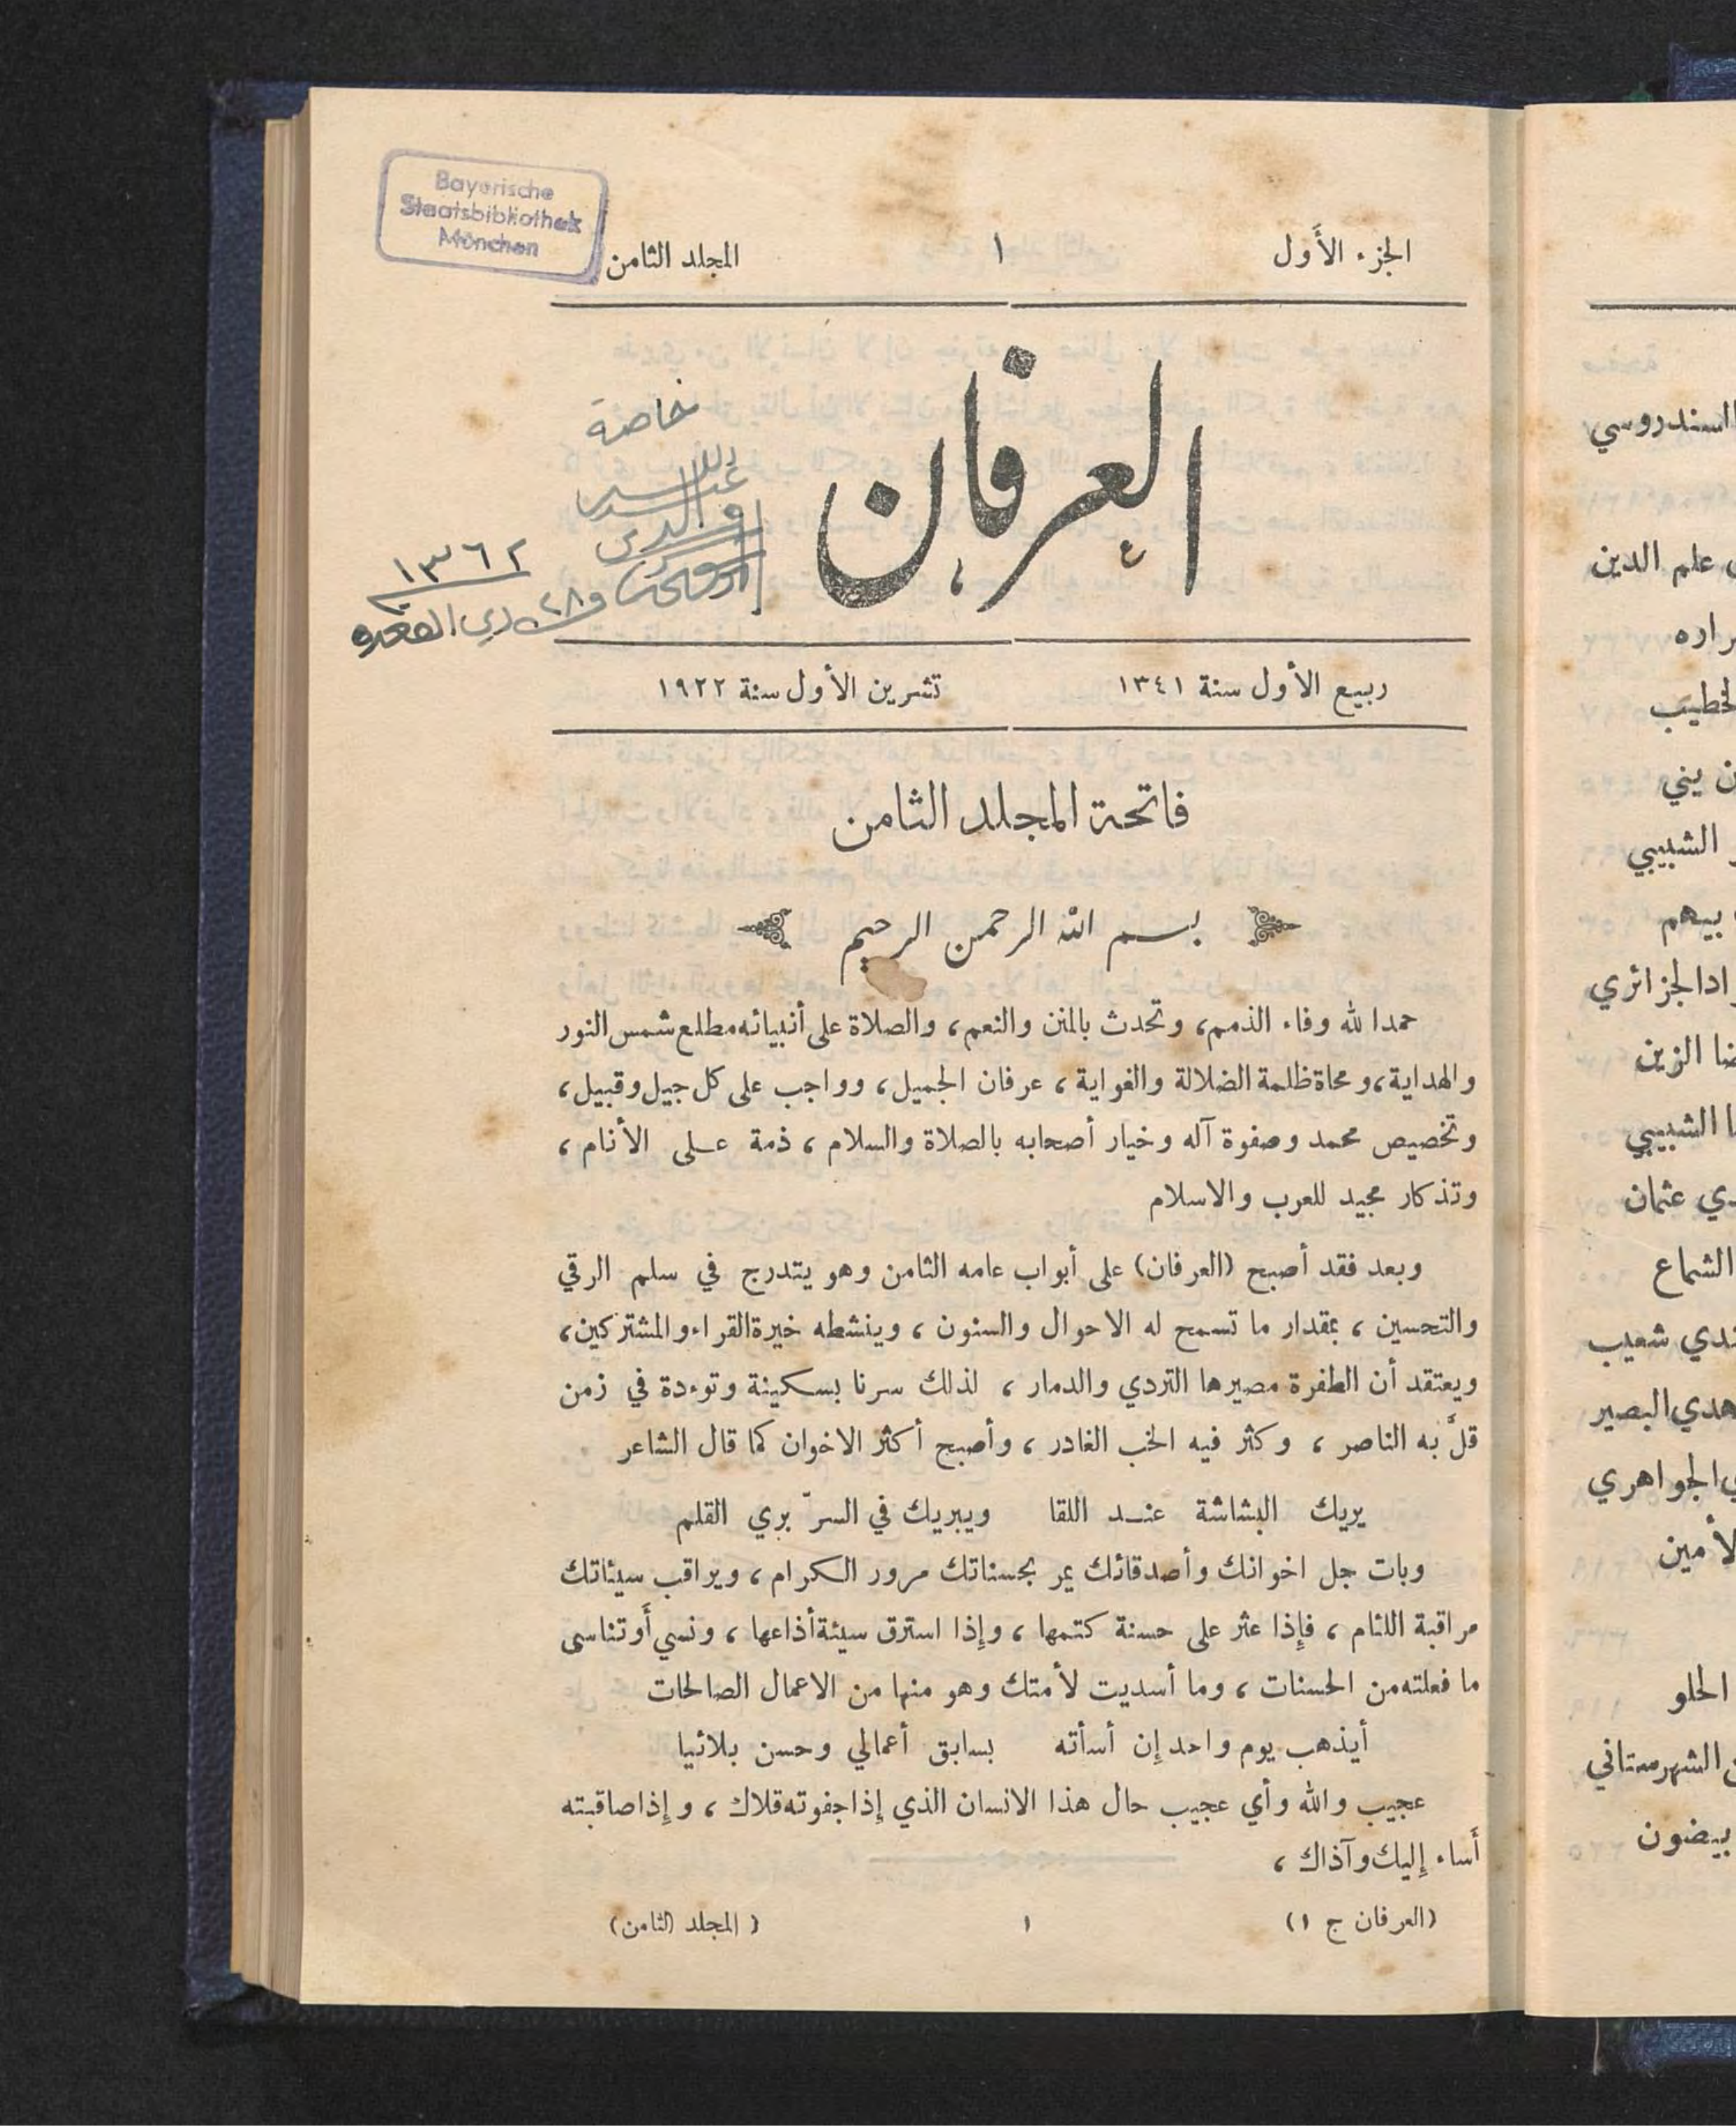 Bayerische
Staatsbibliothek
München
الجزء الأَول ١ المجلد الثامن
العرفان
خاصة
١٣٦٢
ربيع الأول سنة ١٣٤١ تشرين الأول سنة ١٩٢٢
فاتحة المجلد الثامن
بسم الله الرحمن الرحيم
حمدا لله وفاء الذمم، وتحدث بالمنن والنعم، والصلاة على أنبيائه مطلع شمس النور
والهداية، ومحاة ظلمة الضلالة والغواية، عرفان الجميل، وواجب على كل جيل وقبيل،
وتخصيص محمد وصفوة آله وخيار أصحابه بالصلاة والسلام، ذمة على الأنام،
وتذكار مجيد للعرب والاسلام
وبعد فقد أصبح (العرفان) على أبواب عامه الثامن وهو يتدرج في سلم الرقي
والتحسين، بمقدار ما تسمح له الاحوال والسنون، وينشطه خيرة القراء والمشتركين،
ويعتقد أن الطفرة مصيرها التردي والدمار، لذلك سرنا بسكينة وتوءدة في زمن
قلَّ به الناصر، وكثر فيه الخب الغادر، وأصبح أكثر الاخوان كما قال الشاعر
يريك البشاشة عند اللقا ويبريك في السرّ بري القلم
وبات جل اخوانك وأصدقائك يمر بحسناتك مرور الكرام، ويراقب سيئاتك
مراقبة اللئام، فإذا عثر على حسنة كتمها، وإذا استرق سيئة أذاعها، ونسي أَو تناسى
ما فعلته من الحسنات، وما أسديت لأمتك وهو منها من الاعمال الصالحات
أيذهب يوم واحد إن أسأته بسابق أعمالي وحسن بلائيا
عجيب والله وأي عجيب حال هذا الانسان الذي إذا جفوته قلاك، وإذا صاقبته
أَساء إليك وآذاك،
(العرفان ج ١) ١ (المجلد الثامن)
السندروسي
علم الدين
الخطيب
يني
الشبيبي
بيهم
الجزائري
الزين
الشبيبي
عثمان
الشماع
شعيب
البصير
الجواهري
الحلو
الشهرستاني
بيضون